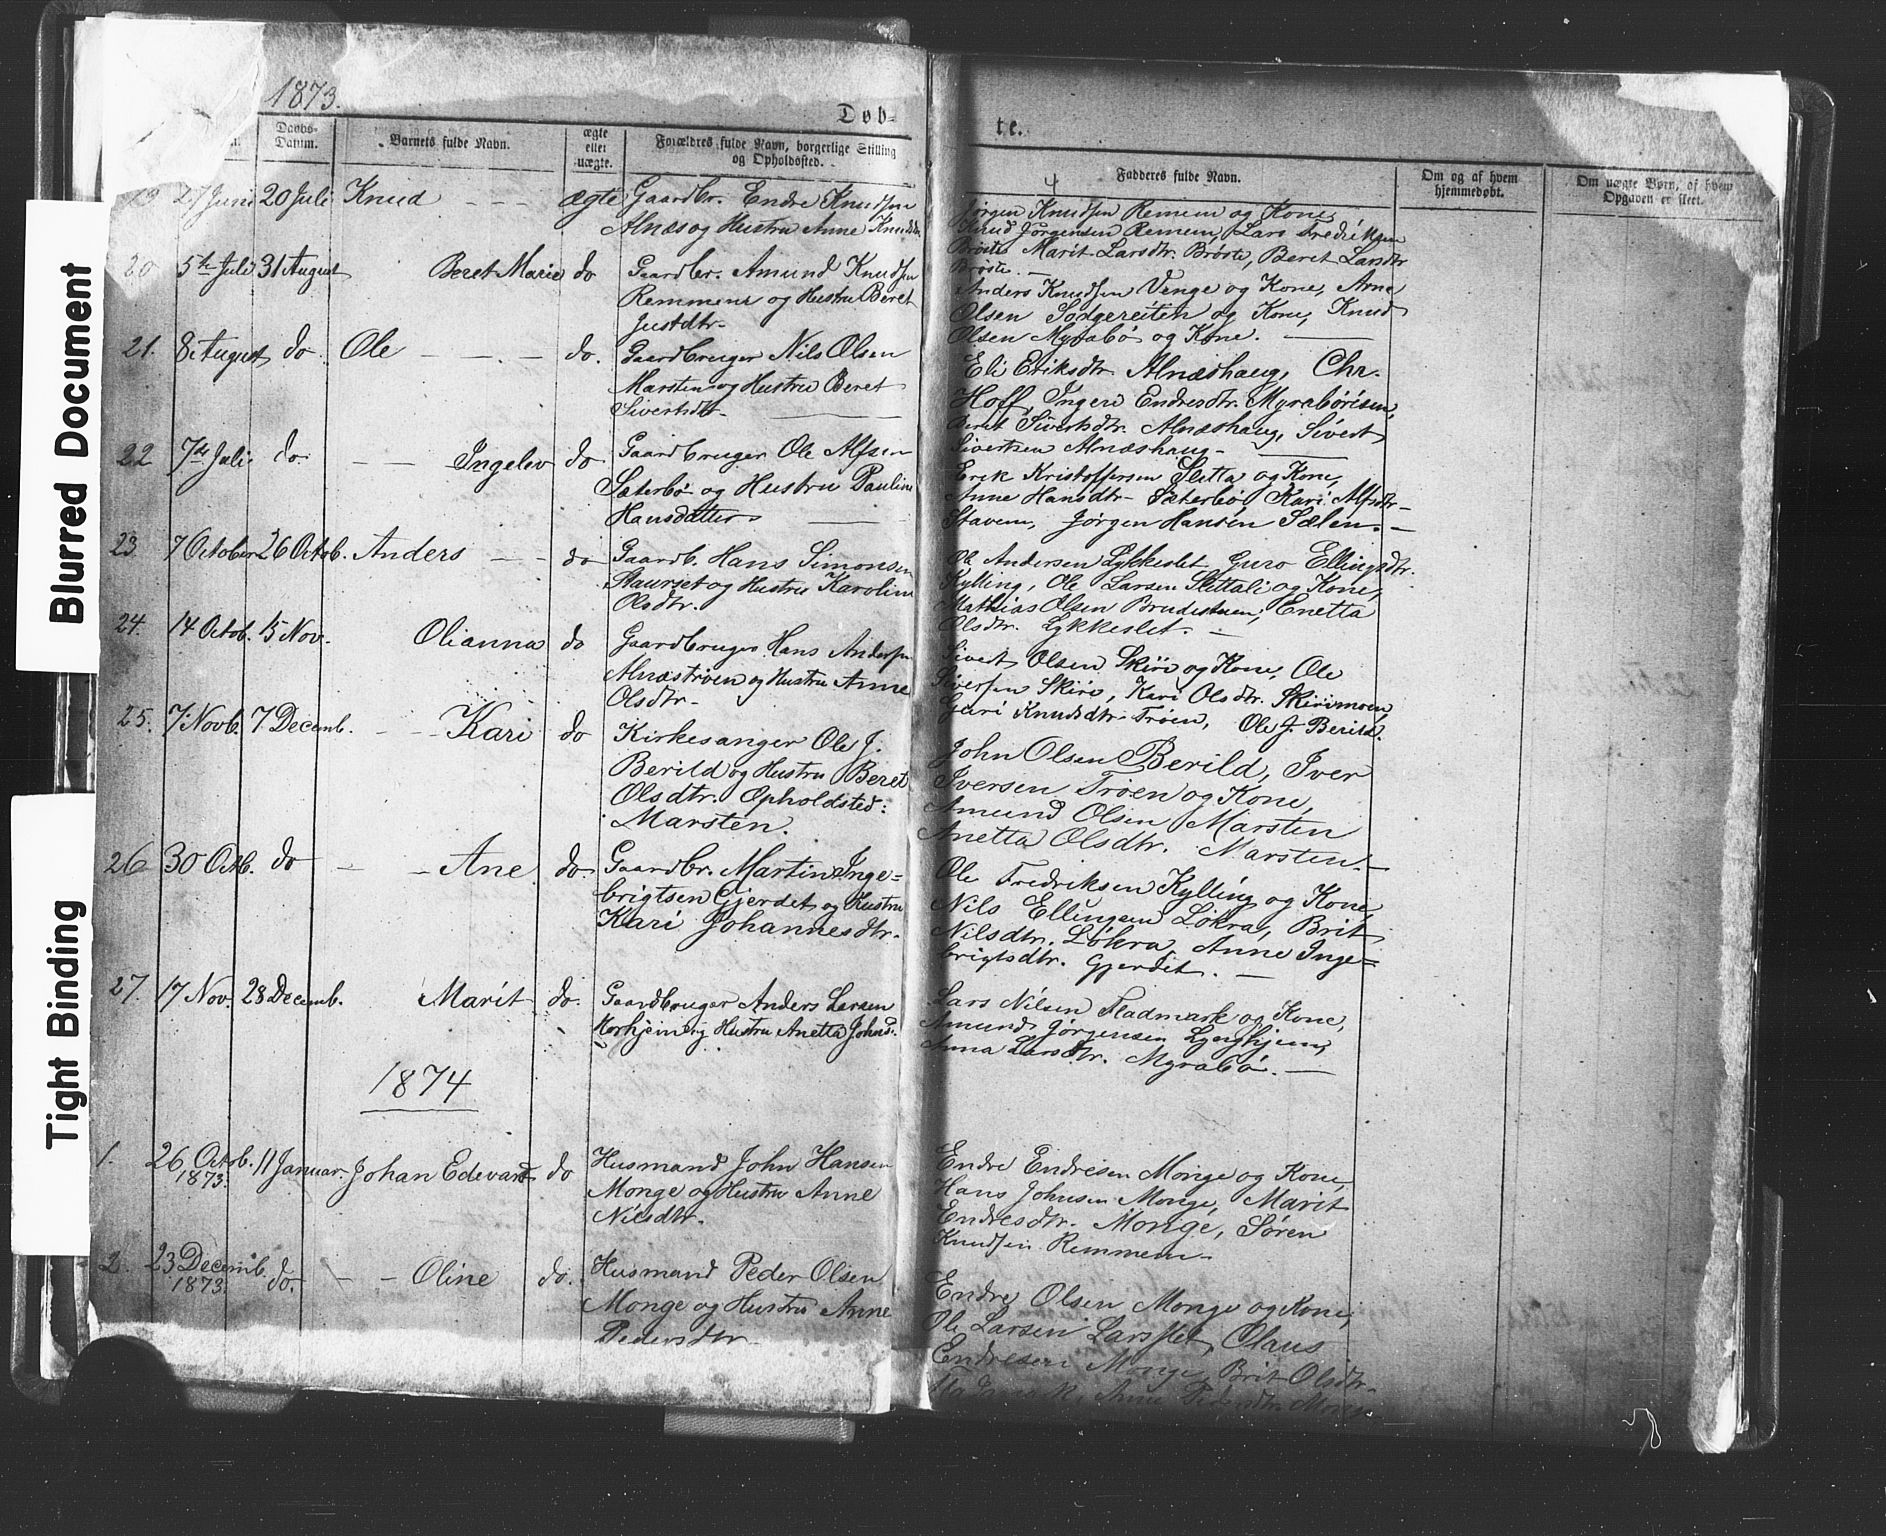 Blurred Document
Tight Binding
1873.
Døb=
Daabs-
Datum.
Barnets fulde Navn.
ægte
eller
uægte.
Forældres fulde Navn, borgerlige Stilling
og Opholdssted.
19 27 Juni 20 Juli Knud - - - ægte Gaardbr. Endre Knudsen
Alnæs og Hustru Anne Knudsdtr
20 5te Juli 31 August Beret Marie do Gaardbr. Amund Knudsen
Remmem og Hustru Beret
Justdtr.
21. 8. August do. Ole - - - do. Gaardbruger Nils Olsen
Marsten og Hustru Beret
Sivertsdtr.
22 7de Juli do. - - Ingelev do Gaardbruger Ole Alfsen
Sæterbø og Hustru Pauline
Hansdatter
23. 7 October 26 Octob. Anders - - do Gaardb. Hans Simonsen
Staurset og Hustru Karoline
Olsdtr.
24. 14 Octob. 15 Nov. Olianna do Gaardbruger Hans Andersen
Alnæstrøen og Hustru Anne
Olsdtr.
25. 7. Novb. 7 Decemb. - - Kari do Kirkesanger Ole J.
Berild og Hustru Beret
Olsdtr. Opholdsted:
Marsten.
26 30 Octb. do - - Ane do. Gaardbr. Martin Inge=
brigtsen Gjerdet og Hustru
Kari Johannesdtr.
27. 17 Nov. 28 Decemb. Marit do. Gaardbruger Anders Larsen
Horhjem og Hustru Anetta Johns.
1874
1. 26 Octob. 11 Januar. Johan Edevard do Husmand John Hansen
1873. Monge og Hustru Anne
Nilsdtr.
2. 23 Decemb. do. - - Oline do. Husmand Peder Olsen
1873. Monge og Hustru Anne
Pedersdtr
te.
Fadderes fulde Navn.
Om og af hvem
hjemmedøbt.
Om uægte Børn, af hvem
Opgaven er skeet.
Jørgen Knudsen Remem og Kone,
Knud Jørgensen Remem, Lars Fredriksen
Brøste Marit Larsdtr. Brøste, Beret Larsdtr
Brøste. -
Anders Knudsen Venge og Kone, Arne
Olsen Sogereiten og Kone, Knud
Olsen Myrabø og Kone.
Eli Eriksdtr Alnæshaug, Chr.
Hoff, Ingeri Endresdtr. Myrabøreisen,
Beret Sivertsdtr. Alnæshaug, Sivert
Sivertsen Alnæshaug -
Erik Kristoffersen Sletta og Kone,
Anne Hansdtr- Sæterbø, Kari Alfsdtr-
Stavem, Jørgen Hansen Sælen. -
Ole Andersen Lykkeslet Guro Ellingsdtr.
Kylling, Ole Larsen Slettali og Kone,
Mathias Olsen Brudestuen, Enetta
Olsdtr. Lykkeslet. -
Sivert Olsen Skiri og Kone, Ole
Siversen Skiri, Kari Olsdtr. Skirimoen,
Guri Knudsdtr Trøen, Ole J. Berild.
John Olsen Berild, Iver
Iversen Trøen og Kone,
Amund Olsen Marsten
Anetta Olsdtr. Marsten. -
Ole Fredriksen Kylling og Kone,
Nils Ellingsen Løkra, Brit
Nilsdtr. Løkra, Anne Inge=
brigtsdtr. Gjerdet. -
Lars Nilsen Fladmark og Kone,
Amund Jørgensen Lyenghjem,
Anna Larsdtr. Myrabø. -
Endre Endresen Monge og Kone,
Hans Johnsen Monge, Marit
Endresdtr. Monge, Søren
Knudsen Remmem -
Endre Olsen Monge og Kone,
Ole Larsen Larsslet, Olaus
Endresen Monge, Brit Olsdtr.
Fladmark, Anne Pedersdtr. Monge